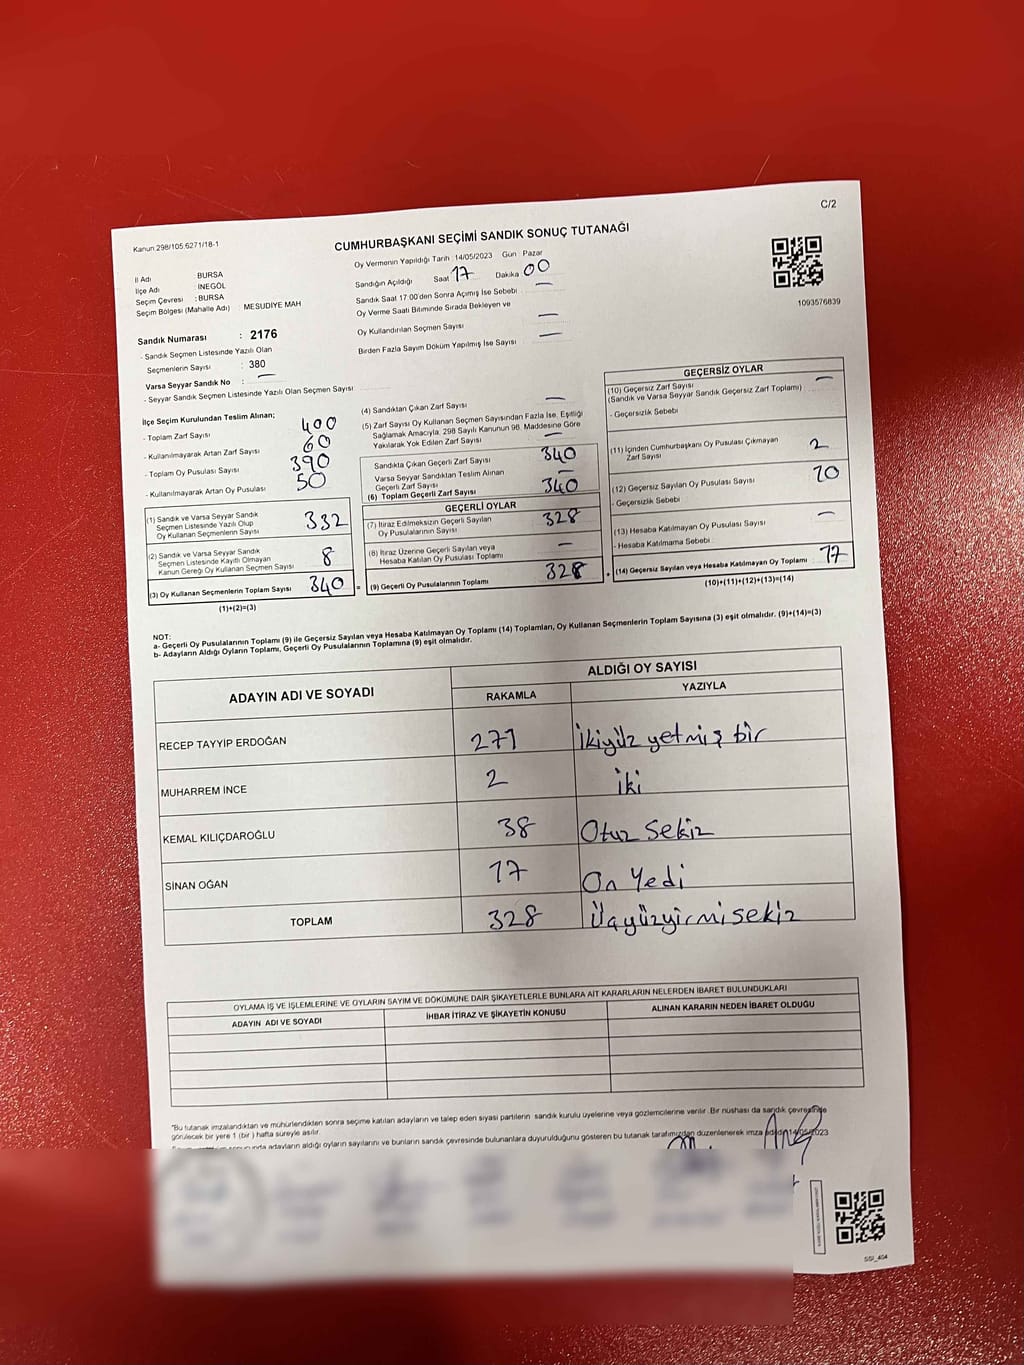 C/2
Kanun.298/105.6271/18-1
CUMHURBAŞKANI SEÇİMİ SANDIK SONUÇ TUTANAĞI
1093576839
İl Adı BURSA
İlçe Adı İNEGÖL
Seçim Çevresi : BURSA
Seçim Bölgesi (Mahalle Adı) : MESUDİYE MAH
Sandık Numarası : 2176
- Sandık Seçmen Listesinde Yazılı Olan
Seçmenlerin Sayısı : 380
Varsa Seyyar Sandık No : —
- Seyyar Sandık Seçmen Listesinde Yazılı Olan Seçmen Sayısı
Oy Vermenin Yapıldığı Tarih :14/05/2023 Gün : Pazar
Sandığın Açıldığı Saat 17 Dakika 00
Sandık Saat 17:00'den Sonra Açımış İse Sebebi —
Oy Verme Saati Bitiminde Sırada Bekleyen ve
Oy Kullandırılan Seçmen Sayısı —
Birden Fazla Sayım Döküm Yapılmış İse Sayısı —
İlçe Seçim Kurulundan Teslim Alınan;
- Toplam Zarf Sayısı 400
- Kullanılmayarak Artan Zarf Sayısı 60
- Toplam Oy Pusulası Sayısı 390
- Kullanılmayarak Artan Oy Pusulası 50
(1) Sandık ve Varsa Seyyar Sandık
Seçmen Listesinde Yazılı Olup
Oy Kullanan Seçmenlerin Sayısı 332
(2) Sandık ve Varsa Seyyar Sandık
Seçmen Listesinde Kayıtlı Olmayan
Kanun Gereği Oy Kullanan Seçmen Sayısı 8
(3) Oy Kullanan Seçmenlerin Toplam Sayısı 340
(1)+(2)=(3)
=
(4) Sandıktan Çıkan Zarf Sayısı —
(5) Zarf Sayısı Oy Kullanan Seçmen Sayısından Fazla İse, Eşitliği
Sağlamak Amacıyla, 298 Sayılı Kanunun 98. Maddesine Göre
Yakılarak Yok Edilen Zarf Sayısı —
Sandıkta Çıkan Geçerli Zarf Sayısı 340
Varsa Seyyar Sandıktan Teslim Alınan
Geçerli Zarf Sayısı —
(6) Toplam Geçerli Zarf Sayısı 340
GEÇERLİ OYLAR
(7) İtiraz Edilmeksizin Geçerli Sayılan
Oy Pusulalarının Sayısı 328
(8) İtiraz Üzerine Geçerli Sayılan veya
Hesaba Katılan Oy Pusulası Toplamı —
(9) Geçerli Oy Pusulalarının Toplamı 328
+
GEÇERSİZ OYLAR
(10) Geçersiz Zarf Sayısı —
(Sandık ve Varsa Seyyar Sandık Geçersiz Zarf Toplamı)
- Geçersizlik Sebebi
(11) İçinden Cumhurbaşkanı Oy Pusulası Çıkmayan
Zarf Sayısı 2
(12) Geçersiz Sayılan Oy Pusulası Sayısı 10
- Geçersizlik Sebebi
(13) Hesaba Katılmayan Oy Pusulası Sayısı —
- Hesaba Katılmama Sebebi
(14) Geçersiz Sayılan veya Hesaba Katılmayan Oy Toplamı 12
(10)+(11)+(12)+(13)=(14)
NOT:
a- Geçerli Oy Pusulalarının Toplamı (9) ile Geçersiz Sayılan veya Hesaba Katılmayan Oy Toplamı (14) Toplamları, Oy Kullanan Seçmenlerin Toplam Sayısına (3) eşit olmalıdır. (9)+(14)=(3)
b- Adayların Aldığı Oyların Toplamı, Geçerli Oy Pusulalarının Toplamına (9) eşit olmalıdır.
ADAYIN ADI VE SOYADI ALDIĞI OY SAYISI
RAKAMLA YAZIYLA
RECEP TAYYİP ERDOĞAN 271 İkiyüz yetmiş bir
MUHARREM İNCE 2 iki
KEMAL KILIÇDAROĞLU 38 Otuz Sekiz
SİNAN OĞAN 17 On Yedi
TOPLAM 328 Üçyüzyirmisekiz
OYLAMA İŞ VE İŞLEMLERİNE VE OYLARIN SAYIM VE DÖKÜMÜNE DAİR ŞİKAYETLERLE BUNLARA AİT KARARLARIN NELERDEN İBARET BULUNDUKLARI
ADAYIN ADI VE SOYADI İHBAR İTİRAZ VE ŞİKAYETİN KONUSU ALINAN KARARIN NEDEN İBARET OLDUĞU
"Bu tutanak imzalandıktan ve mühürlendikten sonra seçime katılan adayların ve talep eden siyasi partilerin sandık kurulu üyelerine veya gözlemcilerine verilir. Bir nüshası da sandık çevresinde
görülecek bir yere 1 (bir) hafta süreyle asılır.
sonunda adayların aldığı oyların sayılarını ve bunların sandık çevresinde bulunanlara duyurulduğunu gösteren bu tutanak tarafımızdan düzenlenerek imza 14/05/2023
SSİ_404